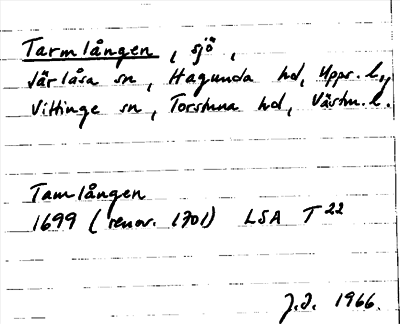 Tarmlången, sjö,
Järlåsa sn, Hagunda hd, Upps. l. o.
Vittinge sn, Torstuna hd, Västm. l.
Tamlången
1699 (renov. 1701) LSA T 22
J.I. 1966.